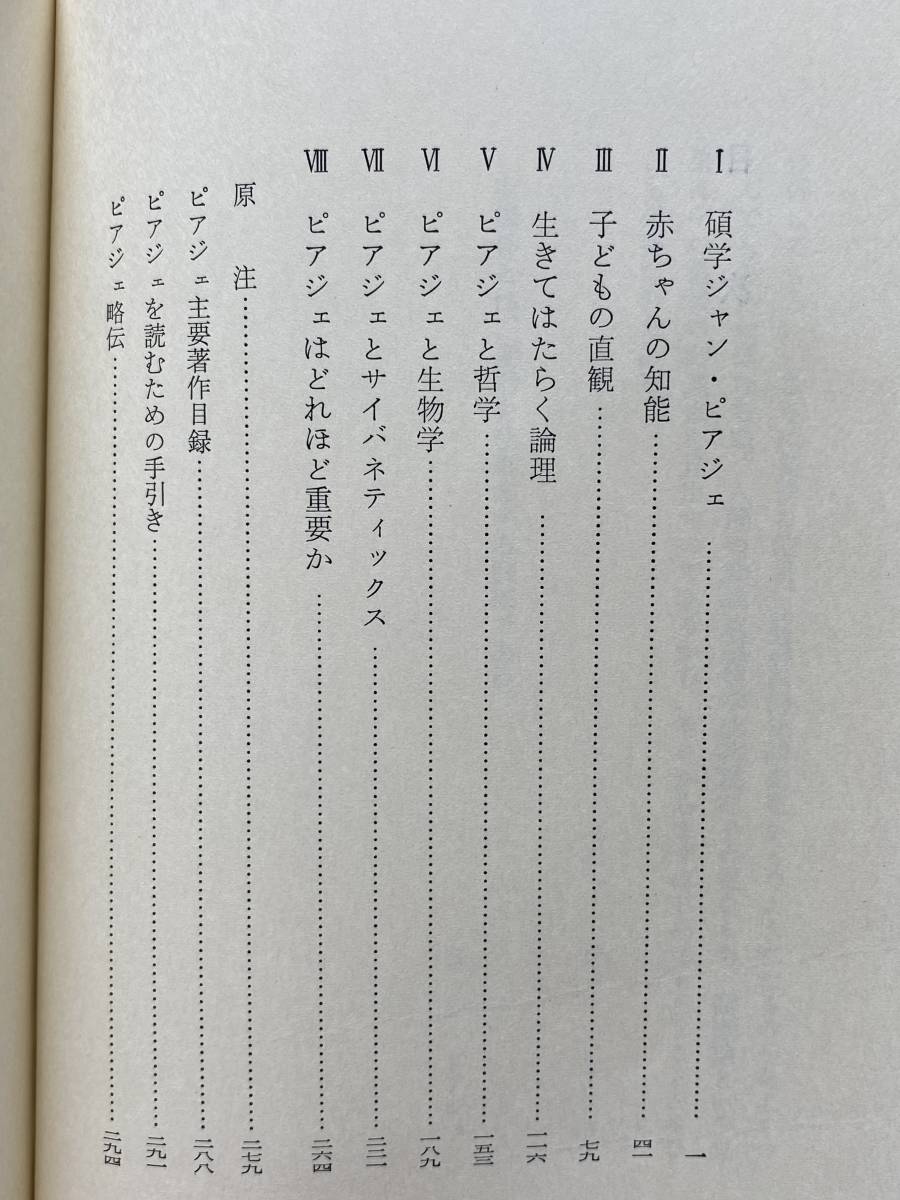 Ⅰ 碩学ジャン・ピアジェ……一
Ⅱ 赤ちゃんの知能……四一
Ⅲ 子どもの直観……七九
Ⅳ 生きてはたらく論理……一一六
Ⅴ ピアジェと哲学……一五三
Ⅵ ピアジェと生物学……一八九
Ⅶ ピアジェとサイバネティックス……二三一
Ⅷ ピアジェはどれほど重要か……二六四
原 注……二七九
ピアジェ主要著作目録……二八八
ピアジェを読むための手引き……二九一
ピアジェ略伝……二九四